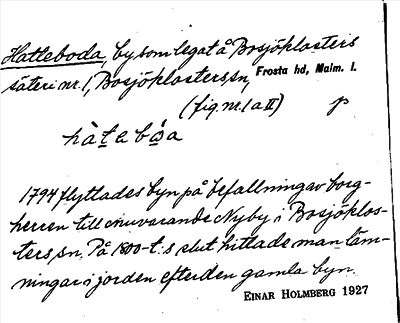 Hatteboda, by som legat å Bosjöklosters
säteri nr. 1, Bosjöklosters sn, Frosta hd, Malm. l.
(fig. nr. 1 a II) p
hàtabωa
1794 flyttades byn på befallning av borg-
herren till nuvarande Nyby i Bosjöklos-
ters sn. På 1800-t:s slut hittade man läm-
ningar i jorden efter den gamla byn.
EINAR HOLMBERG 1927